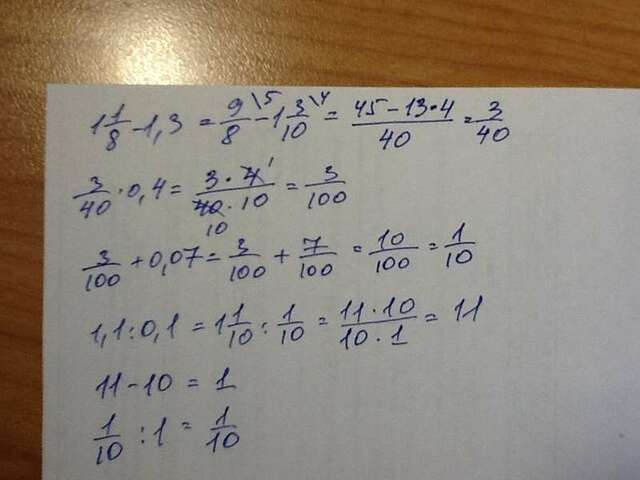 1 1/8 - 1,3 = 9/8 \5 - 1 3/10 \4 = (45 - 13·4)/40 = 3/40
3/40 · 0,4 = (3·4 1)/(40 10 · 10) = 3/100
3/100 + 0,07 = 3/100 + 7/100 = 10/100 = 1/10
1,1 : 0,1 = 1 1/10 : 1/10 = (11·10)/(10·1) = 11
11 - 10 = 1
1/10 : 1 = 1/10